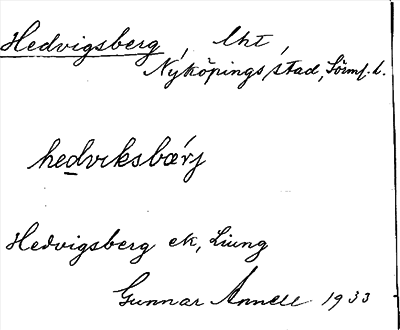 Hedvigsberg, lht,
Nyköpings stad, Sörml. l.
hedviksbærj
Hedvigsberg ek, Ljung
Gunnar Annell 1933